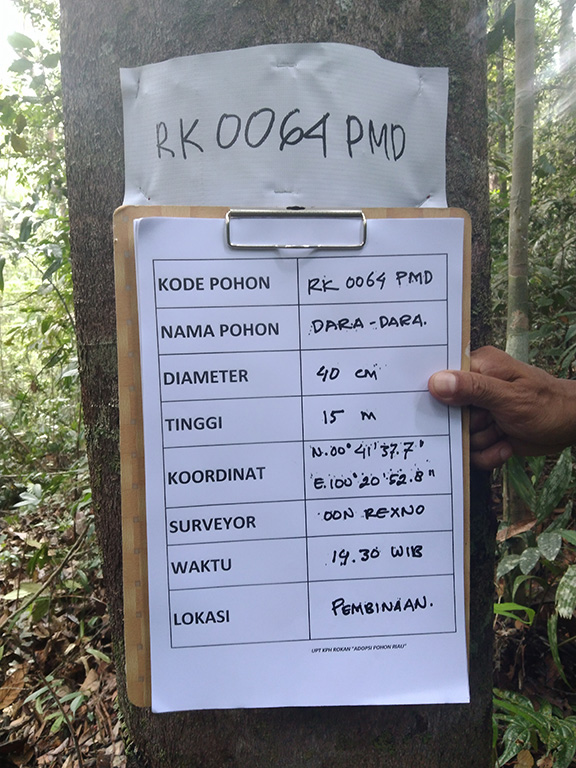 RK 0064 PMD
KODE POHON RK 0064 PMD
NAMA POHON DARA-DARA.
DIAMETER 40 cm
TINGGI 15 m
KOORDINAT N.00° 41' 37.7"
E.100° 20' 52.8"
SURVEYOR OON REXNO
WAKTU 14.30 WIB
LOKASI PEMBINAAN.
UPT KPH ROKAN "ADOPSI POHON RIAU"